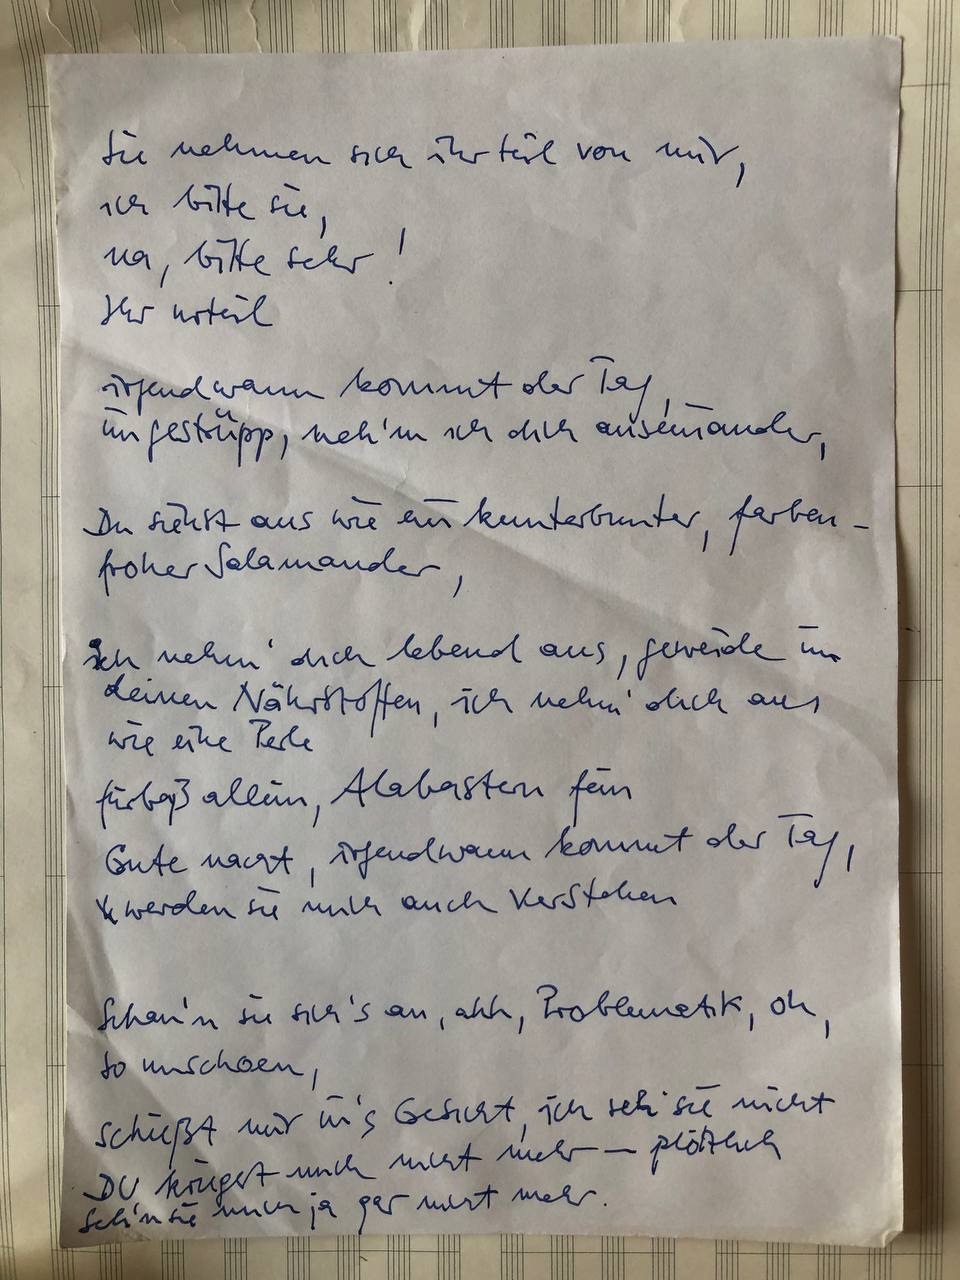 Sie nehmen sich ihr teil von mir,
ich bitte sie,
na, bitte sehr!
Ihr urteil
irgendwann kommt der Tag,
im gestrüpp, neh'm ich dich auseinander,
Du siehst aus wie ein kunterbunter, farben-
froher Salamander,
Ich nehm' dich lebend aus, geweide in
deinen Nährstoffen, ich nehm' dich aus
wie eine Perle
fürbaß allein, Alabastern fein
Gute nacht, irgendwann kommt der Tag,
werden sie mich auch verstehen
Schau'n sie sich's an, ahh, Problematik, oh,
so unschoen,
schießt mir in's Gesicht, ich seh' sie nicht
DU kriegst mich nicht mehr – plötzlich
seh'n sie mich ja gar nicht mehr.